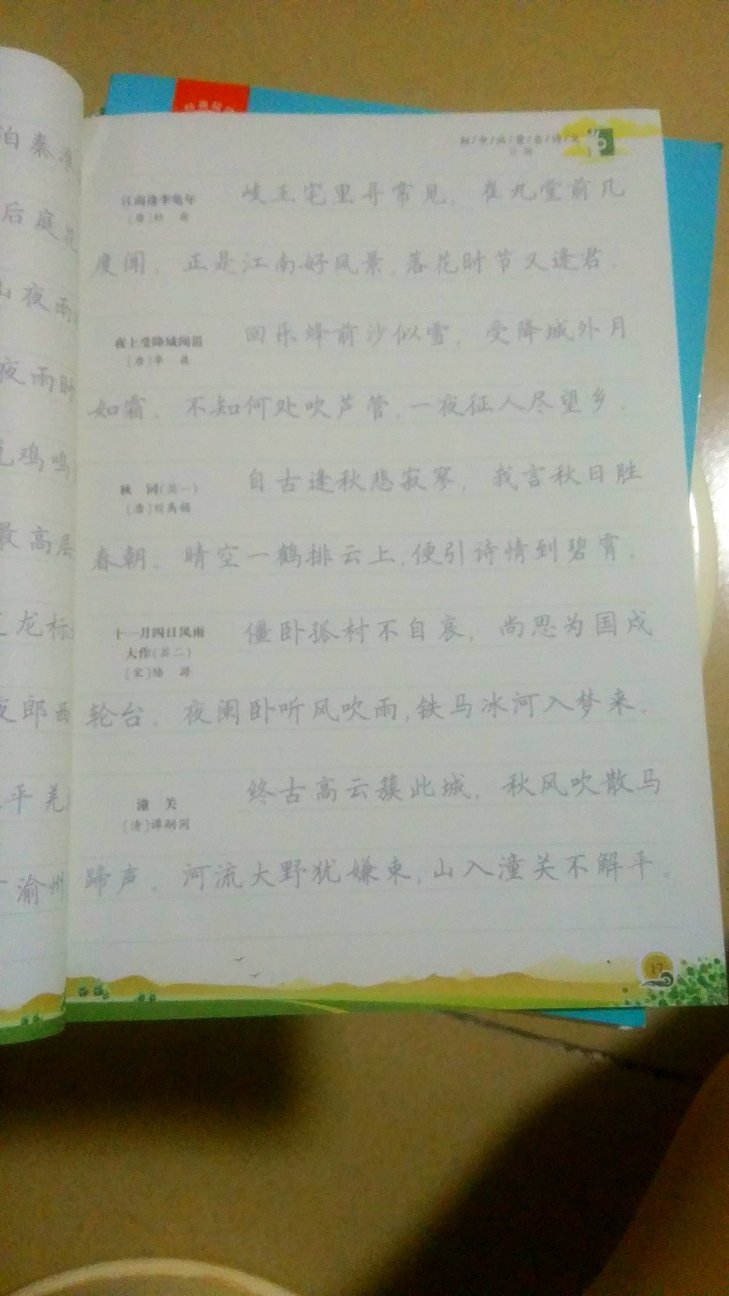 泊秦淮
后庭花
山夜雨
夜雨时
鸡鸣
最高层
龙标
夜郎西
平羌
渝州
初中必背古诗文
6
江南逢李龟年
[唐]杜甫
岐王宅里寻常见，崔九堂前几
度闻。正是江南好风景，落花时节又逢君。
夜上受降城闻笛
[唐]李益
回乐烽前沙似雪，受降城外月
如霜。不知何处吹芦管，一夜征人尽望乡。
秋词(其一)
[唐]刘禹锡
自古逢秋悲寂寥，我言秋日胜
春朝。晴空一鹤排云上，便引诗情到碧霄。
十一月四日风雨
大作(其二)
[宋]陆游
僵卧孤村不自哀，尚思为国戍
轮台。夜阑卧听风吹雨，铁马冰河入梦来。
潼关
[清]谭嗣同
终古高云簇此城，秋风吹散马
蹄声。河流大野犹嫌束，山入潼关不解平。
17